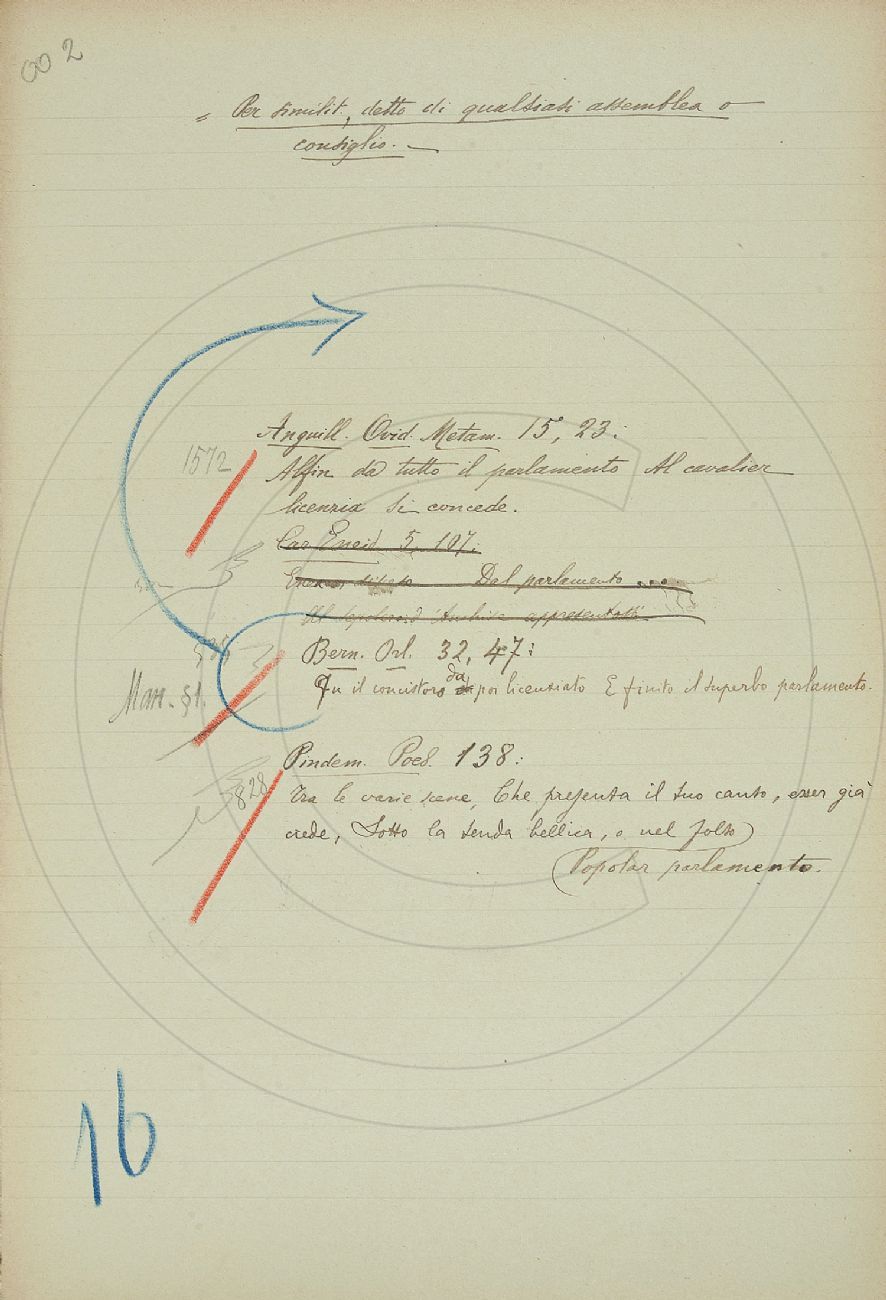 002
= Per similit., detto di qualsiasi assemblea o
consiglio. —
Anguill. Ovid. Metam. 15, 23:
1572
Alfin da tutto il parlamento Al cavalier
licenzia si concede.
Car. Eneid. 5, 107:
Dal parlamento ...
Al sepolcro d'Anchise appresentossi
Bern. Orl. 32, 47:
Man. §1.
Fu il concistoro da poi licenziato E finito il superbo parlamento.
Pindem. Poes. 138:
828
Tra le varie scene, Che presenta il suo canto, esser già
crede, Sotto la tenda bellica, o nel folto
Popolar parlamento.
16